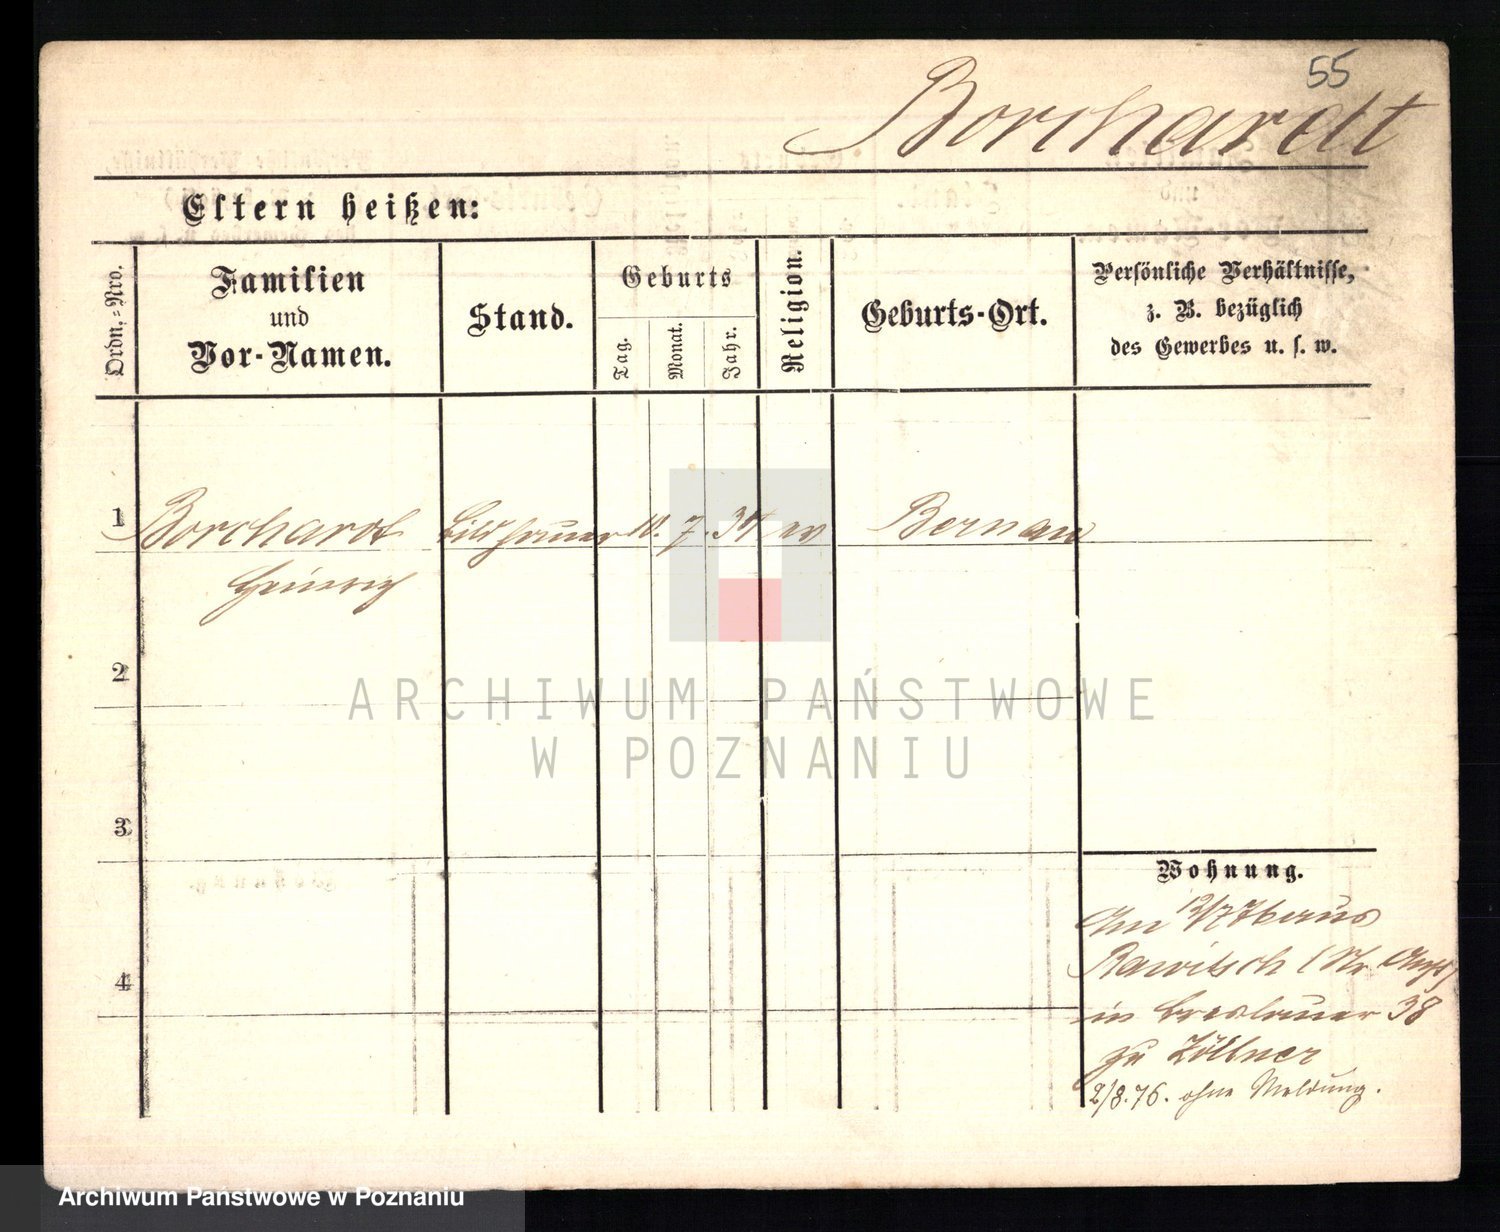 55
Borchardt
Eltern heißen:
Ordn.-Nro.
Familien
und
Vor-Namen.
Stand.
Geburts
Tag.
Monat.
Jahr.
Religion.
Geburts-Ort.
Persönliche Verhältnisse,
z. B. bezüglich
des Gewerbes u. s. w.
1
Borchardt Bildhauer 10. 7. 34 ev Bernau
Heinrich
2
ARCHIWUM PAŃSTWOWE
W POZNANIU
3
4
Wohnung.
Am 12/7 76 aus
Rawitsch
in Breslauer 38
zu Zöllner
2/8.76. ohne Meldung.
Archiwum Państwowe w Poznaniu